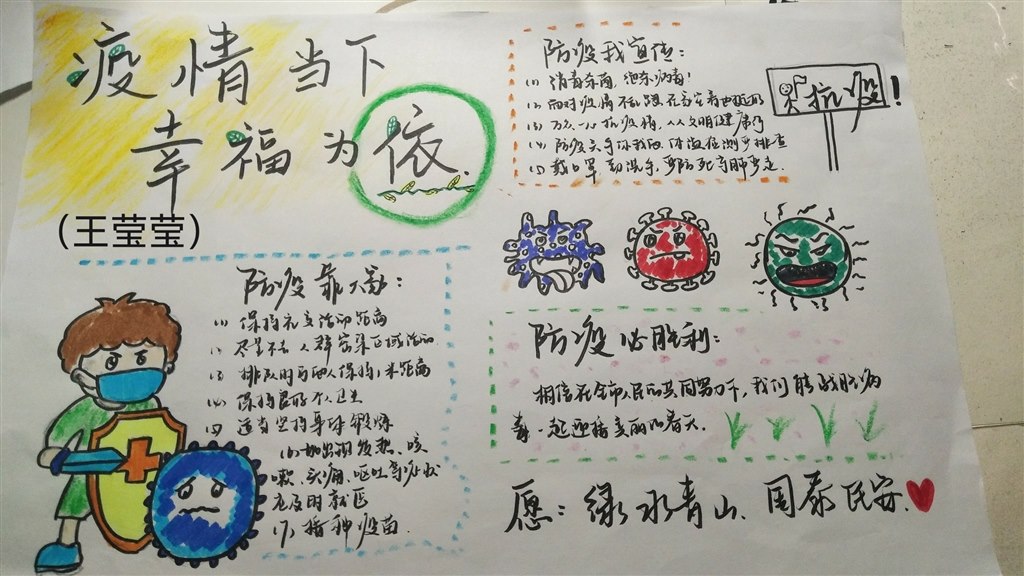 疫情当下
幸福为依.
(王莹莹)
防疫我宣传:
(1) 消毒杀菌, 绝杀病毒!
(3) 万众一心抗疫情, 人人文明健康行
(4) 防疫关乎你我他 体温检测多排查
(5) 戴口罩 勤洗手
抗疫!
防疫靠大家:
(1) 保持社交活动距离
尽量不去人群密集区域活动
(3) 排队时与他人保持1米距离
(4) 保持良好个人卫生
适当坚持身体锻炼
(6) 如出现发热、咳
嗽、头痛、呕吐等症状
应及时就医
(7) 接种疫苗.
防疫必胜利:
相信在全市人民的共同努力下, 我们能战胜病
毒, 一起迎接美丽的春天.
愿: 绿水青山、国泰民安.